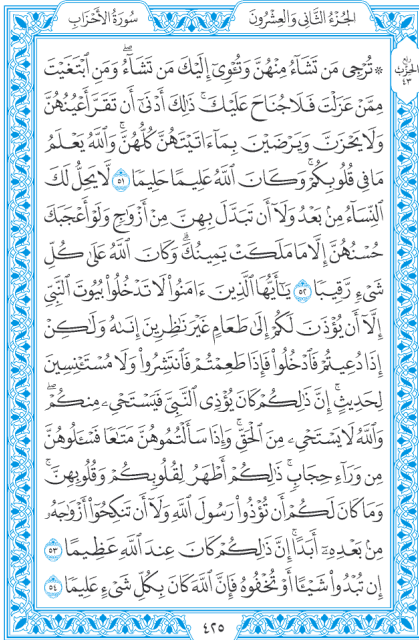 الجُزْءُ الثَّانِي وَالعِشْرُونَ
سُورَةُ الأَحْزَابِ
۞ تُرْجِى مَن تَشَآءُ مِنْهُنَّ وَتُـْٔوِىٓ إِلَيْكَ مَن تَشَآءُۖ وَمَنِ ٱبْتَغَيْتَ
مِمَّنْ عَزَلْتَ فَلَا جُنَاحَ عَلَيْكَۚ ذَٰلِكَ أَدْنَىٰٓ أَن تَقَرَّ أَعْيُنُهُنَّ
وَلَا يَحْزَنَّ وَيَرْضَيْنَ بِمَآ ءَاتَيْتَهُنَّ كُلُّهُنَّۚ وَٱللَّهُ يَعْلَمُ
مَا فِى قُلُوبِكُمْۚ وَكَانَ ٱللَّهُ عَلِيمًا حَلِيمًا ٥١ لَّا يَحِلُّ لَكَ
ٱلنِّسَآءُ مِنۢ بَعْدُ وَلَآ أَن تَبَدَّلَ بِهِنَّ مِنْ أَزْوَٰجٍ وَلَوْ أَعْجَبَكَ
حُسْنُهُنَّ إِلَّا مَا مَلَكَتْ يَمِينُكَۗ وَكَانَ ٱللَّهُ عَلَىٰ كُلِّ
شَىْءٍ رَّقِيبًا ٥٢ يَـٰٓأَيُّهَا ٱلَّذِينَ ءَامَنُوا۟ لَا تَدْخُلُوا۟ بُيُوتَ ٱلنَّبِىِّ
إِلَّآ أَن يُؤْذَنَ لَكُمْ إِلَىٰ طَعَامٍ غَيْرَ نَـٰظِرِينَ إِنَىٰهُ وَلَـٰكِنْ
إِذَا دُعِيتُمْ فَٱدْخُلُوا۟ فَإِذَا طَعِمْتُمْ فَٱنتَشِرُوا۟ وَلَا مُسْتَـْٔنِسِينَ
لِحَدِيثٍۚ إِنَّ ذَٰلِكُمْ كَانَ يُؤْذِى ٱلنَّبِىَّ فَيَسْتَحْىِۦ مِنكُمْۖ
وَٱللَّهُ لَا يَسْتَحْىِۦ مِنَ ٱلْحَقِّۚ وَإِذَا سَأَلْتُمُوهُنَّ مَتَـٰعًا فَسْـَٔلُوهُنَّ
مِن وَرَآءِ حِجَابٍۚ ذَٰلِكُمْ أَطْهَرُ لِقُلُوبِكُمْ وَقُلُوبِهِنَّۚ
وَمَا كَانَ لَكُمْ أَن تُؤْذُوا۟ رَسُولَ ٱللَّهِ وَلَآ أَن تَنكِحُوٓا۟ أَزْوَٰجَهُۥ
مِنۢ بَعْدِهِۦٓ أَبَدًاۚ إِنَّ ذَٰلِكُمْ كَانَ عِندَ ٱللَّهِ عَظِيمًا ٥٣
إِن تُبْدُوا۟ شَيْـًٔا أَوْ تُخْفُوهُ فَإِنَّ ٱللَّهَ كَانَ بِكُلِّ شَىْءٍ عَلِيمًا ٥٤
ربع
الحزب
٤٣
٤٢٥